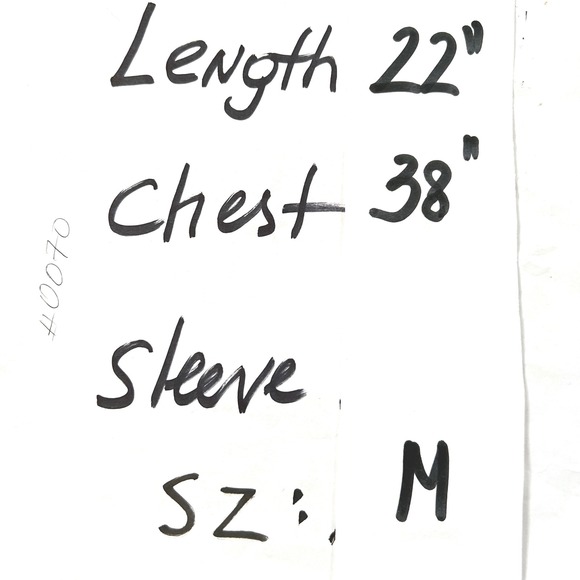 Length 22"
Chest 38"
#0070
Sleeve
SZ: M